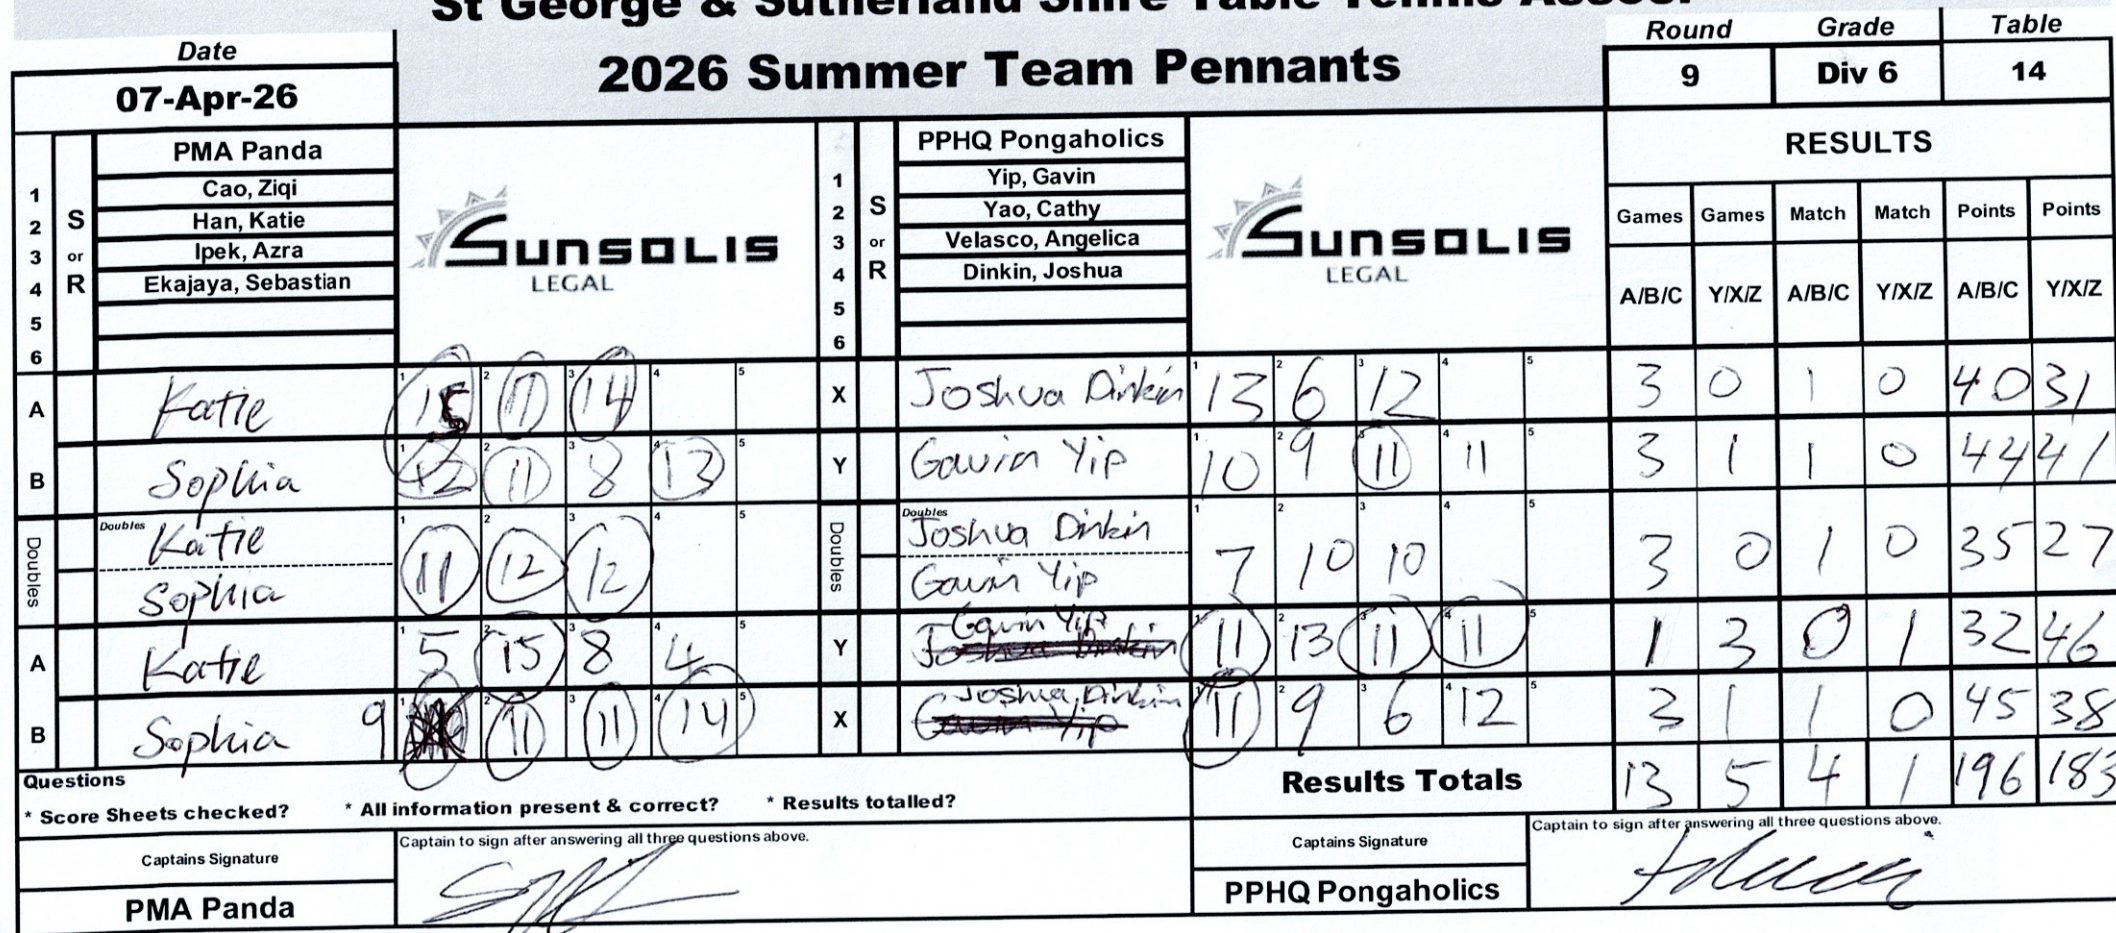 St George & Sutherland Shire Table Tennis Assoc.
2026 Summer Team Pennants
Date
07-Apr-26
Round Grade Table
9 Div 6 14
1 2 3 4 5 6
S or R
PMA Panda
Cao, Ziqi
Han, Katie
Ipek, Azra
Ekajaya, Sebastian
SUNSOLIS
LEGAL
1 2 3 4 5 6
S or R
PPHQ Pongaholics
Yip, Gavin
Yao, Cathy
Velasco, Angelica
Dinkin, Joshua
SUNSOLIS
LEGAL
RESULTS
Games Games Match Match Points Points
A/B/C Y/X/Z A/B/C Y/X/Z A/B/C Y/X/Z
A Katie 15 11 14 X Joshua Dinkin 13 6 12 3 0 1 0 40 31
B Sophia 12 11 8 13 Y Gavin Yip 10 9 11 11 3 1 1 0 44 41
Doubles Doubles Katie Doubles Doubles Joshua Dinkin
Sophia 11 12 12 Gavin Yip 7 10 10 3 0 1 0 35 27
A Katie 5 15 8 4 Y Gavin Yip 11 13 11 11 1 3 0 1 32 46
B Sophia 9 11 11 14 X Joshua Dinkin 11 9 6 12 3 1 1 0 45 38
Questions
* Score Sheets checked? * All information present & correct? * Results totalled?
Results Totals 13 5 4 1 196 183
Captains Signature
Captain to sign after answering all three questions above.
PMA Panda
Captains Signature
Captain to sign after answering all three questions above.
PPHQ Pongaholics